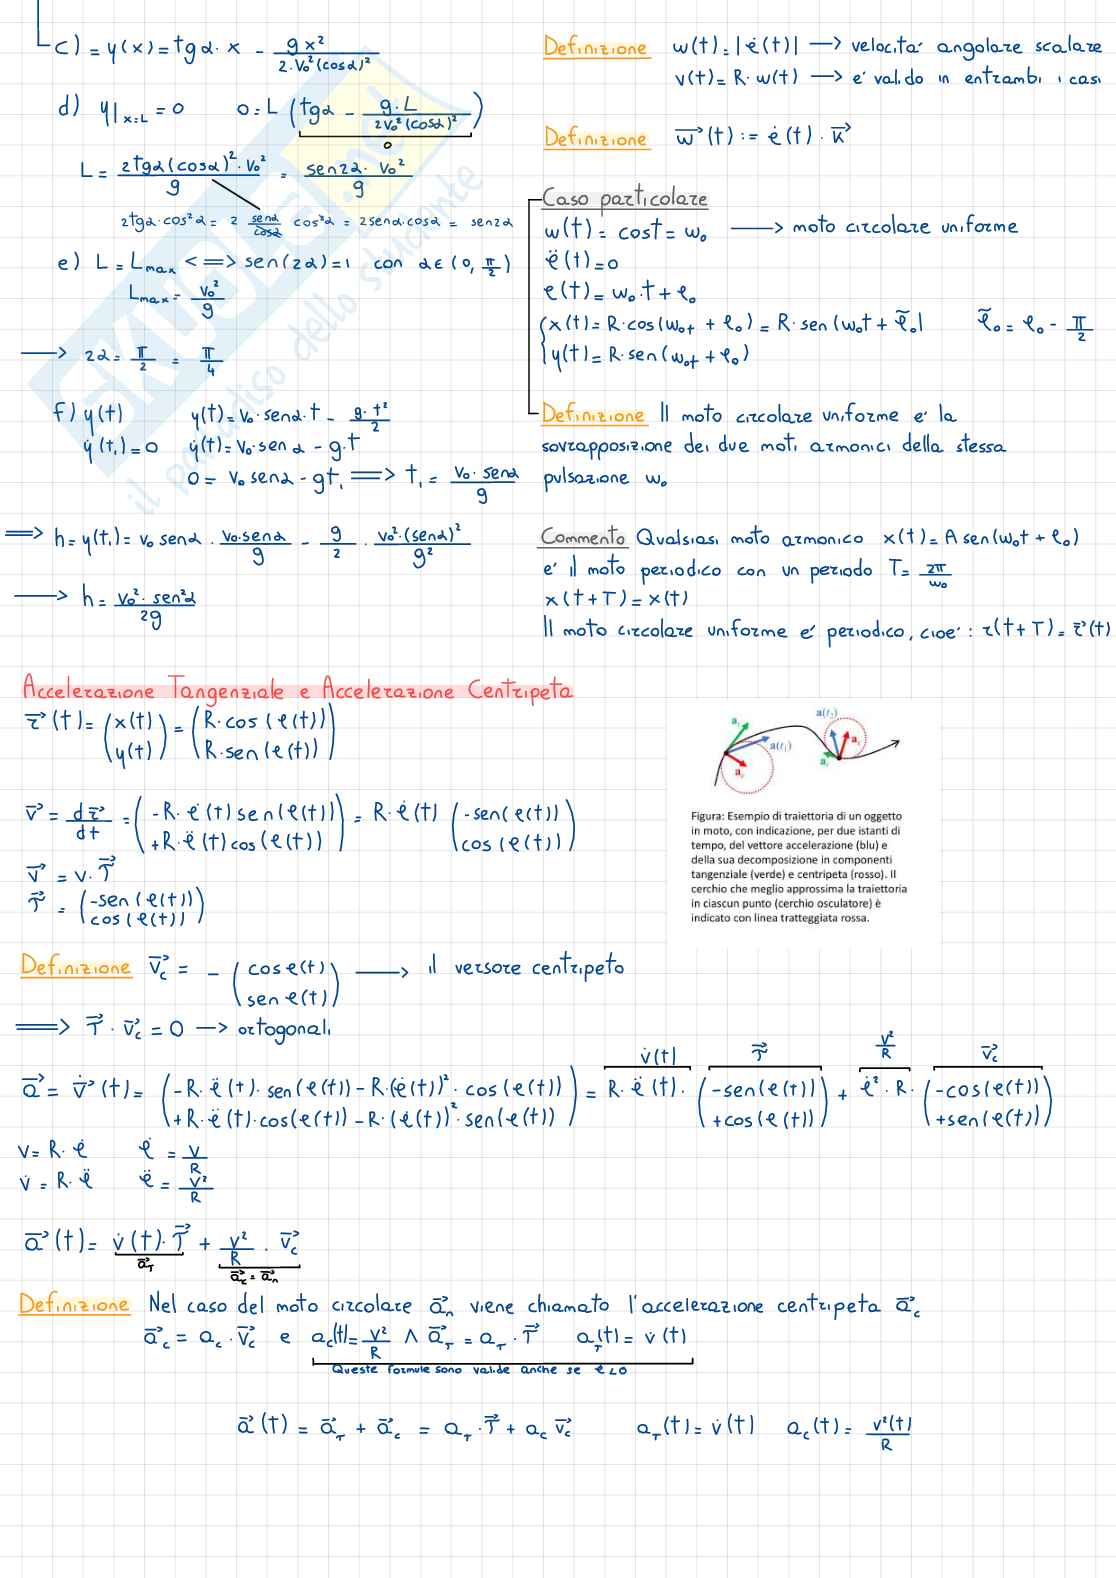 c) = y(x) = tgα · x - gx² / 2·V₀²(cosα)²
d) y|x=L = 0 0 = L (tgα - g·L / 2V₀²(cosα)²)
0
L = 2tgα(cosα)²·V₀² / g = sen2α · V₀² / g
2tgα·cos²α = 2 senα/cosα cos²α = 2senα·cosα = sen2α
e) L = Lmax <=> sen(2α)=1 con α∈(0, π/2)
Lmax = V₀²/g
→ 2α = π/2 = π/4
f) y(t) y(t) = V₀·senα·t - g·t²/2
ẏ(t₁) = 0 ẏ(t) = V₀·senα - g·t
0 = V₀ senα - gt₁ ⟹ t₁ = V₀·senα / g
⟹ h = y(t₁) = V₀ senα · V₀·senα/g - g/2 · V₀²·(senα)²/g²
→ h = V₀²·sen²α / 2g
Definizione w(t) = |ė(t)| → velocita' angolare scalare
v(t) = R·w(t) → e' valido in entrambi i casi
Definizione w⃗(t) := ė(t)·k⃗
Caso particolare
w(t) = cost = w₀ → moto circolare uniforme
ë(t) = 0
e(t) = w₀·t + e₀
{x(t) = R·cos(w₀t + e₀) = R·sen(w₀t + ẽ₀) ẽ₀ = e₀ - π/2
{y(t) = R·sen(w₀t + e₀)
Definizione Il moto circolare uniforme e' la
sovrapposizione dei due moti armonici della stessa
pulsazione w₀
Commento Qualsiasi moto armonico x(t) = A sen(w₀t + e₀)
e' il moto periodico con un periodo T = 2π/w₀
x(t+T) = x(t)
Il moto circolare uniforme e' periodico, cioe': r(t+T) = r⃗(t)
Accelerazione Tangenziale e Accelerazione Centripeta
r⃗(t) = (x(t) y(t)) = (R·cos(e(t)) R·sen(e(t)))
v⃗ = dr⃗/dt = (-R·ė(t)sen(e(t)) +R·ë(t)cos(e(t))) = R·ė(t) (-sen(e(t)) cos(e(t)))
v⃗ = v·T⃗
T⃗ = (-sen(e(t)) cos(e(t)))
a(t₁)
a(t₂)
Figura: Esempio di traiettoria di un oggetto
in moto, con indicazione, per due istanti di
tempo, del vettore accelerazione (blu) e
della sua decomposizione in componenti
tangenziale (verde) e centripeta (rosso). Il
cerchio che meglio approssima la traiettoria
in ciascun punto (cerchio osculatore) è
indicato con linea tratteggiata rossa.
Definizione v⃗c = -(cos e(t) sen e(t)) → il versore centripeto
⟹ T⃗ · v⃗c = 0 → ortogonali
v̇(t) T⃗ v²/R v⃗c
a⃗ = v̇⃗(t) = (-R·ë(t)·sen(e(t)) - R·(ė(t))²·cos(e(t)) +R·ë(t)·cos(e(t)) - R·(ė(t))²·sen(e(t))) = R·ë(t)·(-sen(e(t)) +cos(e(t))) + ė²·R·(-cos(e(t)) +sen(e(t)))
v = R·ė ė = v/R
v̇ = R·ë ë = v²/R
a⃗(t) = v̇(t)·T⃗ + v²/R · v⃗c
a⃗T a⃗c = a⃗n
Definizione Nel caso del moto circolare a⃗n viene chiamato l'accelerazione centripeta a⃗c
a⃗c = ac·v⃗c e ac(t) = v²/R ∧ a⃗T = aT·T⃗ aT(t) = v̇(t)
Queste formule sono valide anche se ė<0
a⃗(t) = a⃗T + a⃗c = aT·T⃗ + ac v⃗c aT(t) = v̇(t) ac(t) = v²(t)/R